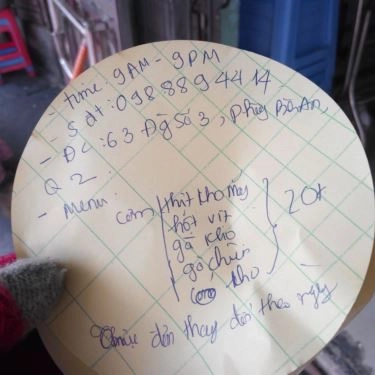 - time: 9AM - 9PM
- Sđt: 0988894414
- Đ/c: 63 Đg Số 3, phường Bình An
Q2
- Menu:
cơm
thịt kho
hột vịt
gà kho
gà chiên
kho
20k
thực đơn thay đổi theo ngày